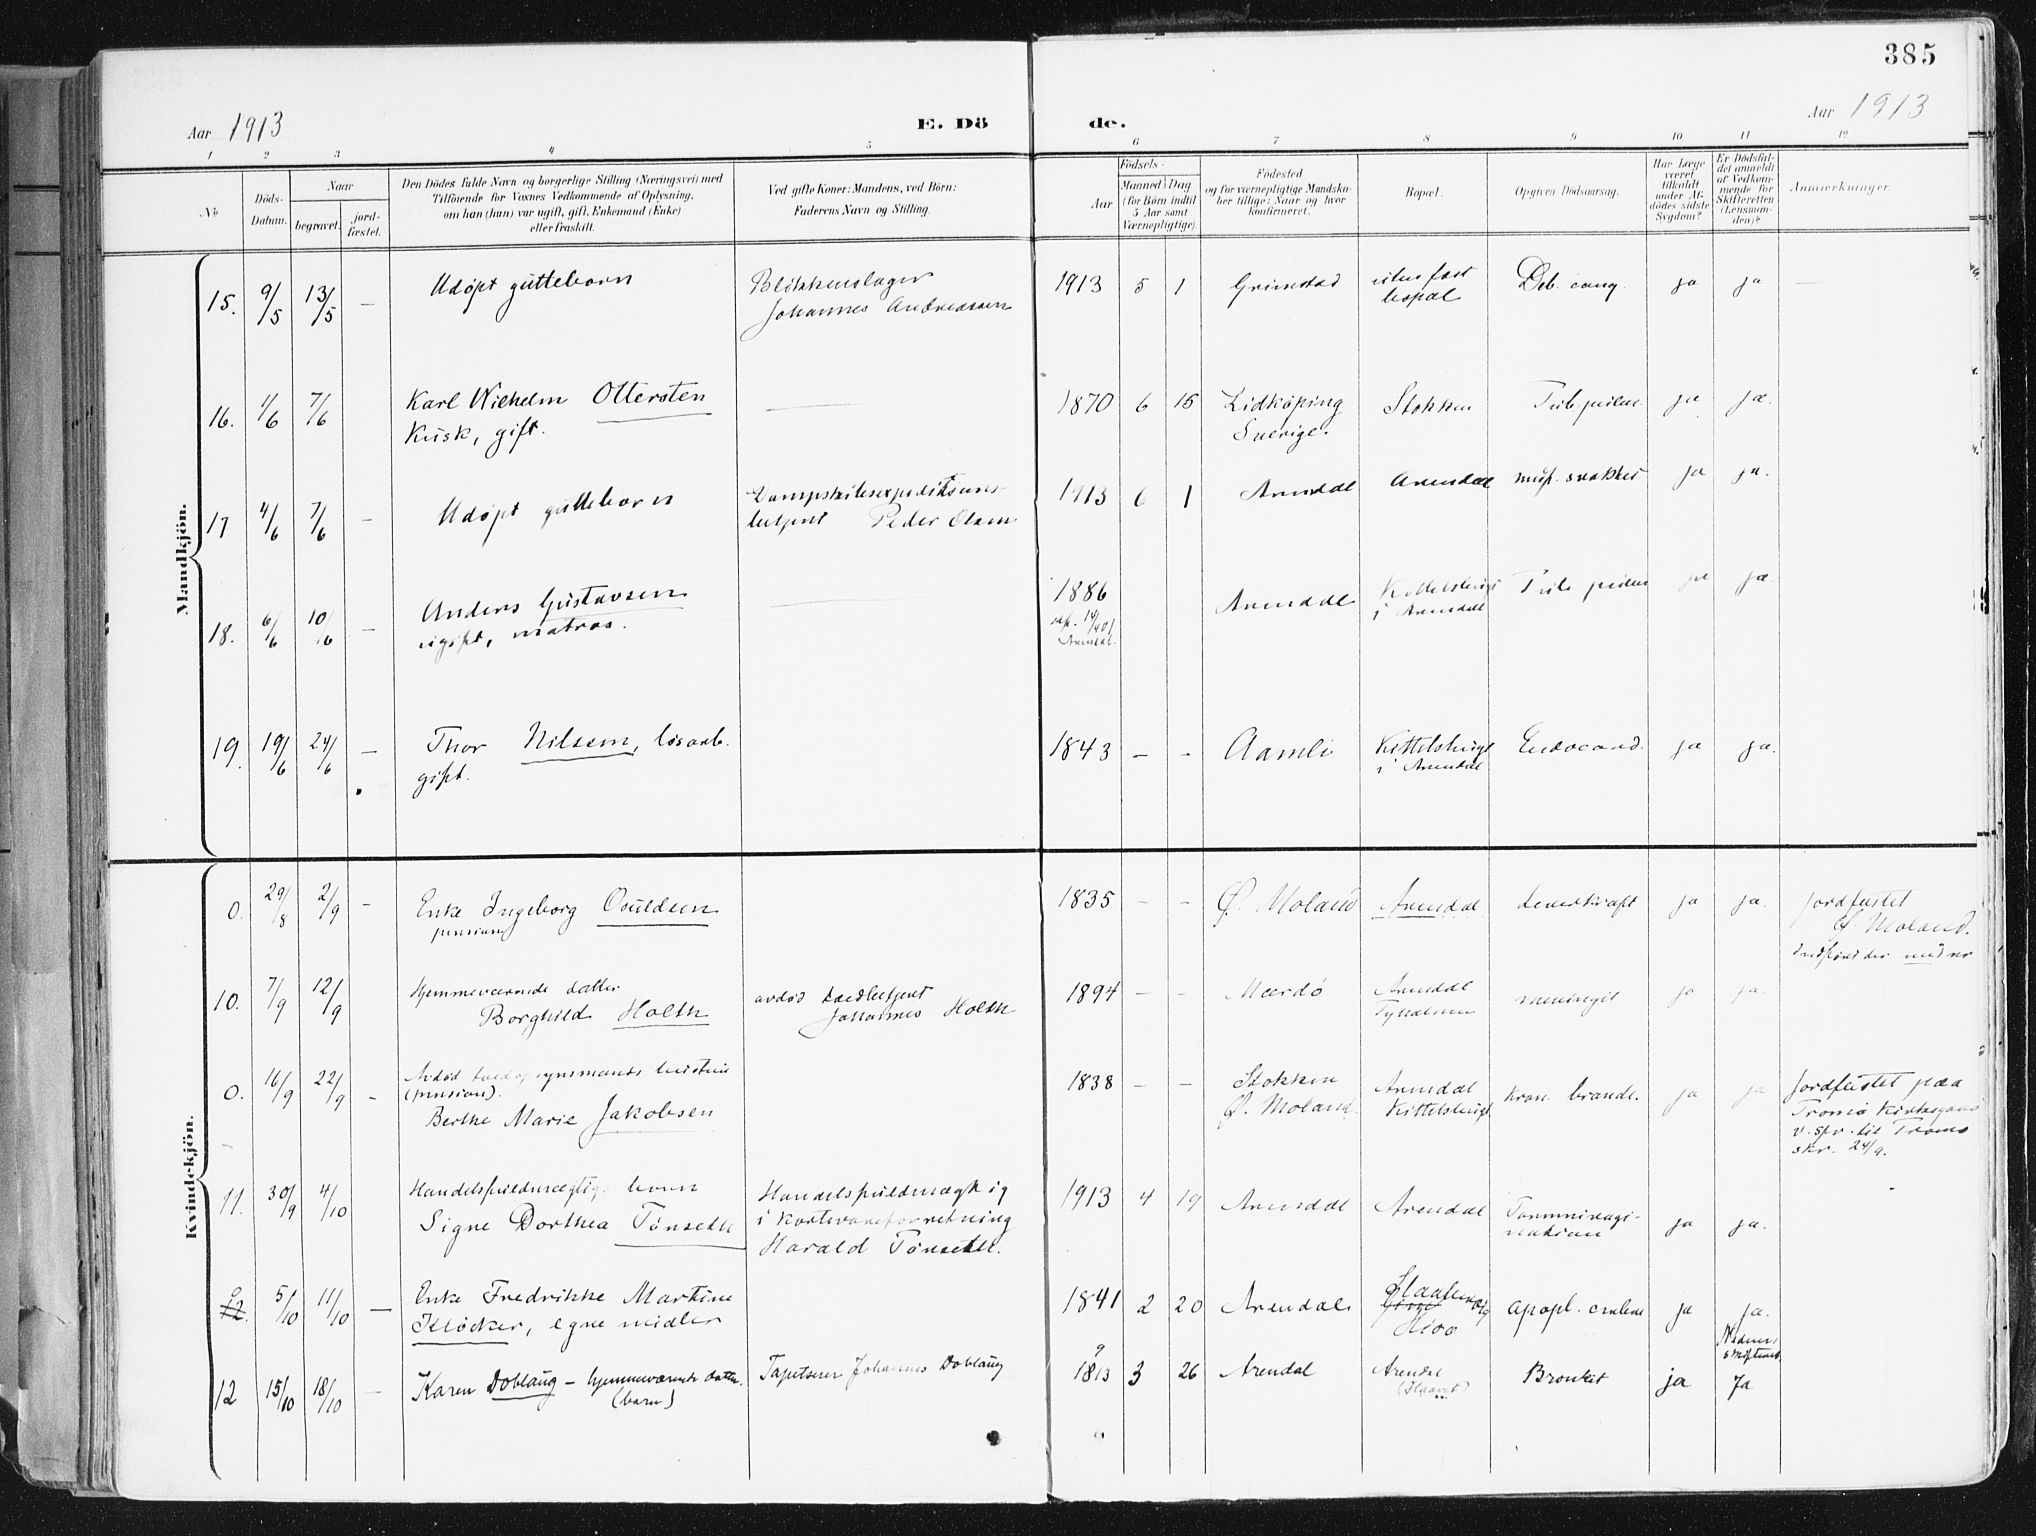 385
Aar 1913
E. Dö
de.
Aar 1913
1 2 3 4 5 6 7 8 9 10 11 12
No
Döds-
Datum.
Naar
begravet.
jord-
fæstet.
Den Dödes fulde Navn og borgerlige Stilling (Næringsvei) med
Tilföiende for Voxnes Vedkommende af Oplysning,
om han (hun) var ugift, gift, Enkemand (Enke)
eller fraskilt.
Ved gifte Koner: Mandens, ved Börn:
Faderens Navn og Stilling.
Födsels-
Aar
Maaned Dag
(for Börn indtil
5 Aar samt
Værnepligtige).
Födested
og for værnepligtige Mandska-
ber tillige: Naar og hvor
konfirmeret.
Bopæl.
Opgiven Dödsaarsag.
Har Læge
været
tilkaldt
under Af-
dödes sidste
Sygdom?
Er Dödsfal-
det anmeldt
af Vedkom-
mende for
Skifteretten
(Lensman-
den)?
Anmærkninger.
Mandkjön.
15. 9/5 13/5 — Udøpt guttebarn
Blikkenslager
Johannes Andreassen
1913 5 1 Grimstad
uten fast
bopæl
Deb. cong. ja ja —
16. 1/6 7/6 Karl Wilhelm Ottersten
Kusk, gift.
1870 6 15 Lidköping
Sverige.
Stokken ja ja.
17 4/6 7/6 — Udøpt guttebarn
Dampskibsexpeditions-
betjent Peder Olsen
1913 6 1 Arendal Arendal ja ja.
18. 6/6 10/6 — Anders Gustavsen
ugift, matros.
1886
Arendal
Arendal
Kittelsbugt
i Arendal
ja ja.
19. 19/6 24/6 — Thor Nilsen, løsarb.
gift.
1843 — - Aamli
Kittelsbugt
i Arendal
Endocard. ja ja.
Kvindekjön.
0. 29/8 2/9 — Enke Ingeborg Osuldsen
pension
1835 - - Ø. Moland Arendal ja ja.
Jordfæstet
Ø. Moland.
10. 7/9 12/9 Hjemmeværende datter
Borghild Holth
avdød toldbetjent
Johannes Holth
1894 — - Mærdø
Arendal
Tyholmen
meningit ja ja.
0. 16/9 22/9 - Avdød toldopsynsmands hustru
(pension).
Berthe Marie Jakobsen
1838 — —
Stokken
Ø. Moland
Arendal
Kittelsbugt
ja ja
Jordfæstet paa
Tromø Kirkegaard
skr. 24/9.
11. 30/9 4/10 Handelsfuldmægtigs barn
Signe Dorthea Tønseth
Handelsfuldmægtig
i kortevareforretning
Harald Tønseth.
1913 4 19 Arendal Arendal
ja ja.
0
12. 5/10 11/10 — Enke Fredrikke Martine
Kløcker, egne midler
1841 2 20 Arendal
Hisø
ja ja.
12 15/10 18/10 — Karen Doblaug - hjemmeværende datter
(barn)
Tapetserer Johannes Doblaug
9
1813 3 26 Arendal Arendal
Bronkit ja Ja